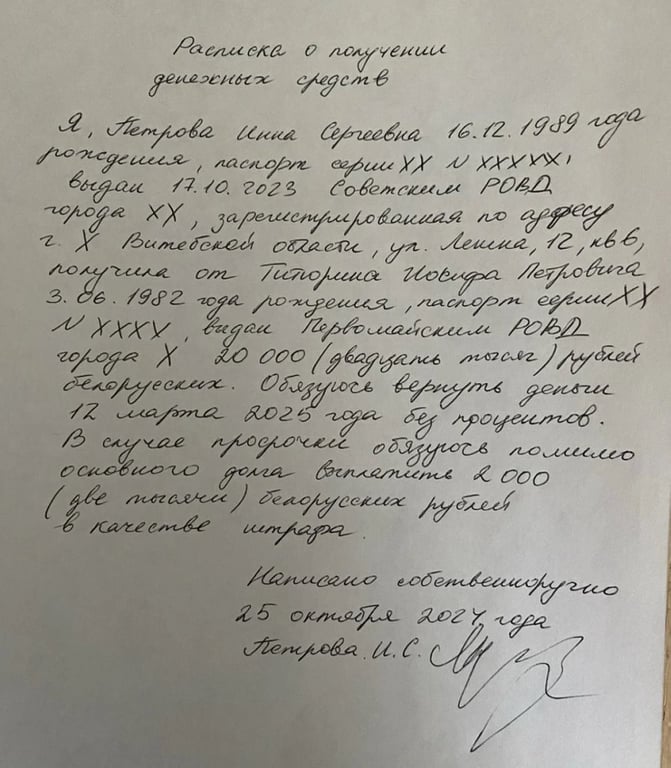 Расписка о получении
денежных средств
Я, Петрова Инна Сергеевна 16.12.1989 года
рождения, паспорт серии XX N XXXXX,
выдан 17.10.2023 Советским РОВД
города XX, зарегистрированная по адресу
г. X Витебской области, ул. Ленина, 12, кв 6,
получила от Титорина Иосифа Петровича
3.06.1982 года рождения, паспорт серии XX
N XXXX, выдан Первомайским РОВД
города X 20 000 (двадцать тысяч) рублей
белорусских. Обязуюсь вернуть деньги
12 марта 2025 года без процентов.
В случае просрочки обязуюсь помимо
основного долга выплатить 2 000
(две тысячи) белорусских рублей
в качестве штрафа.
Написано собственноручно
25 октября 2024 года
Петрова И.С.